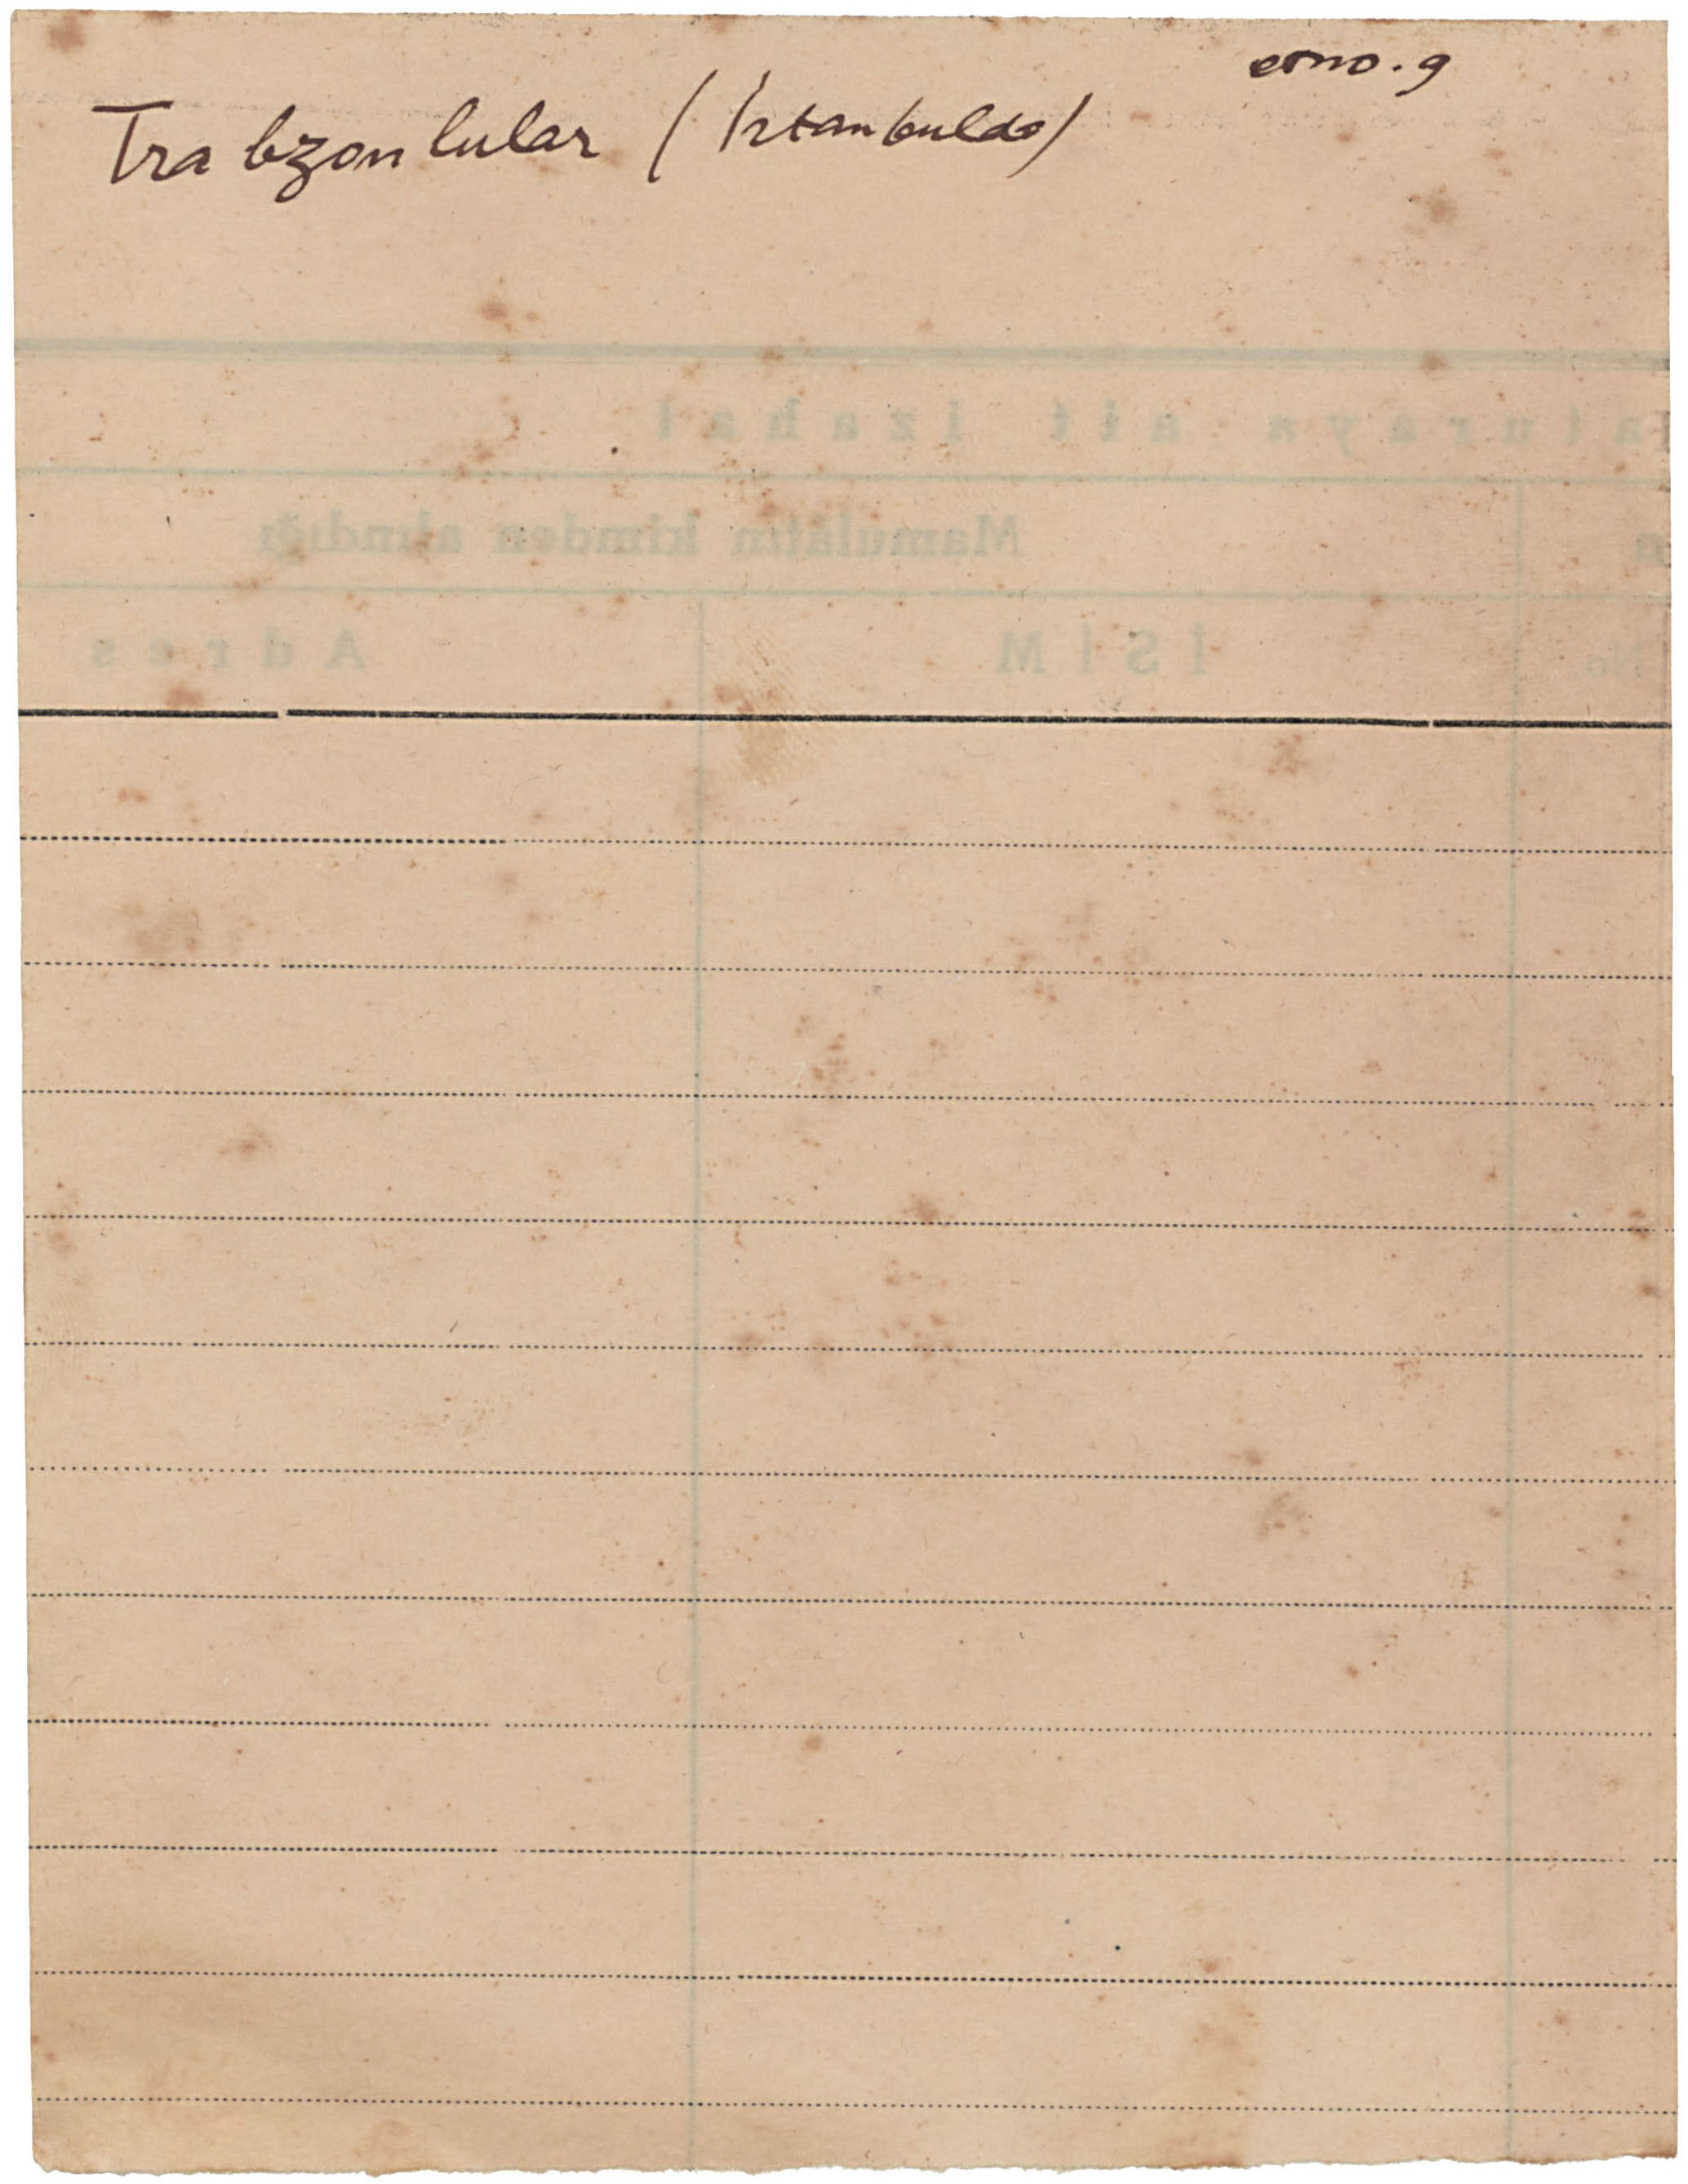 etno. g
Trabzonlular (İstanbulda)
Faturaya ait izahat
Mamulâtın kimden alındığı
No
İSİM
Adres